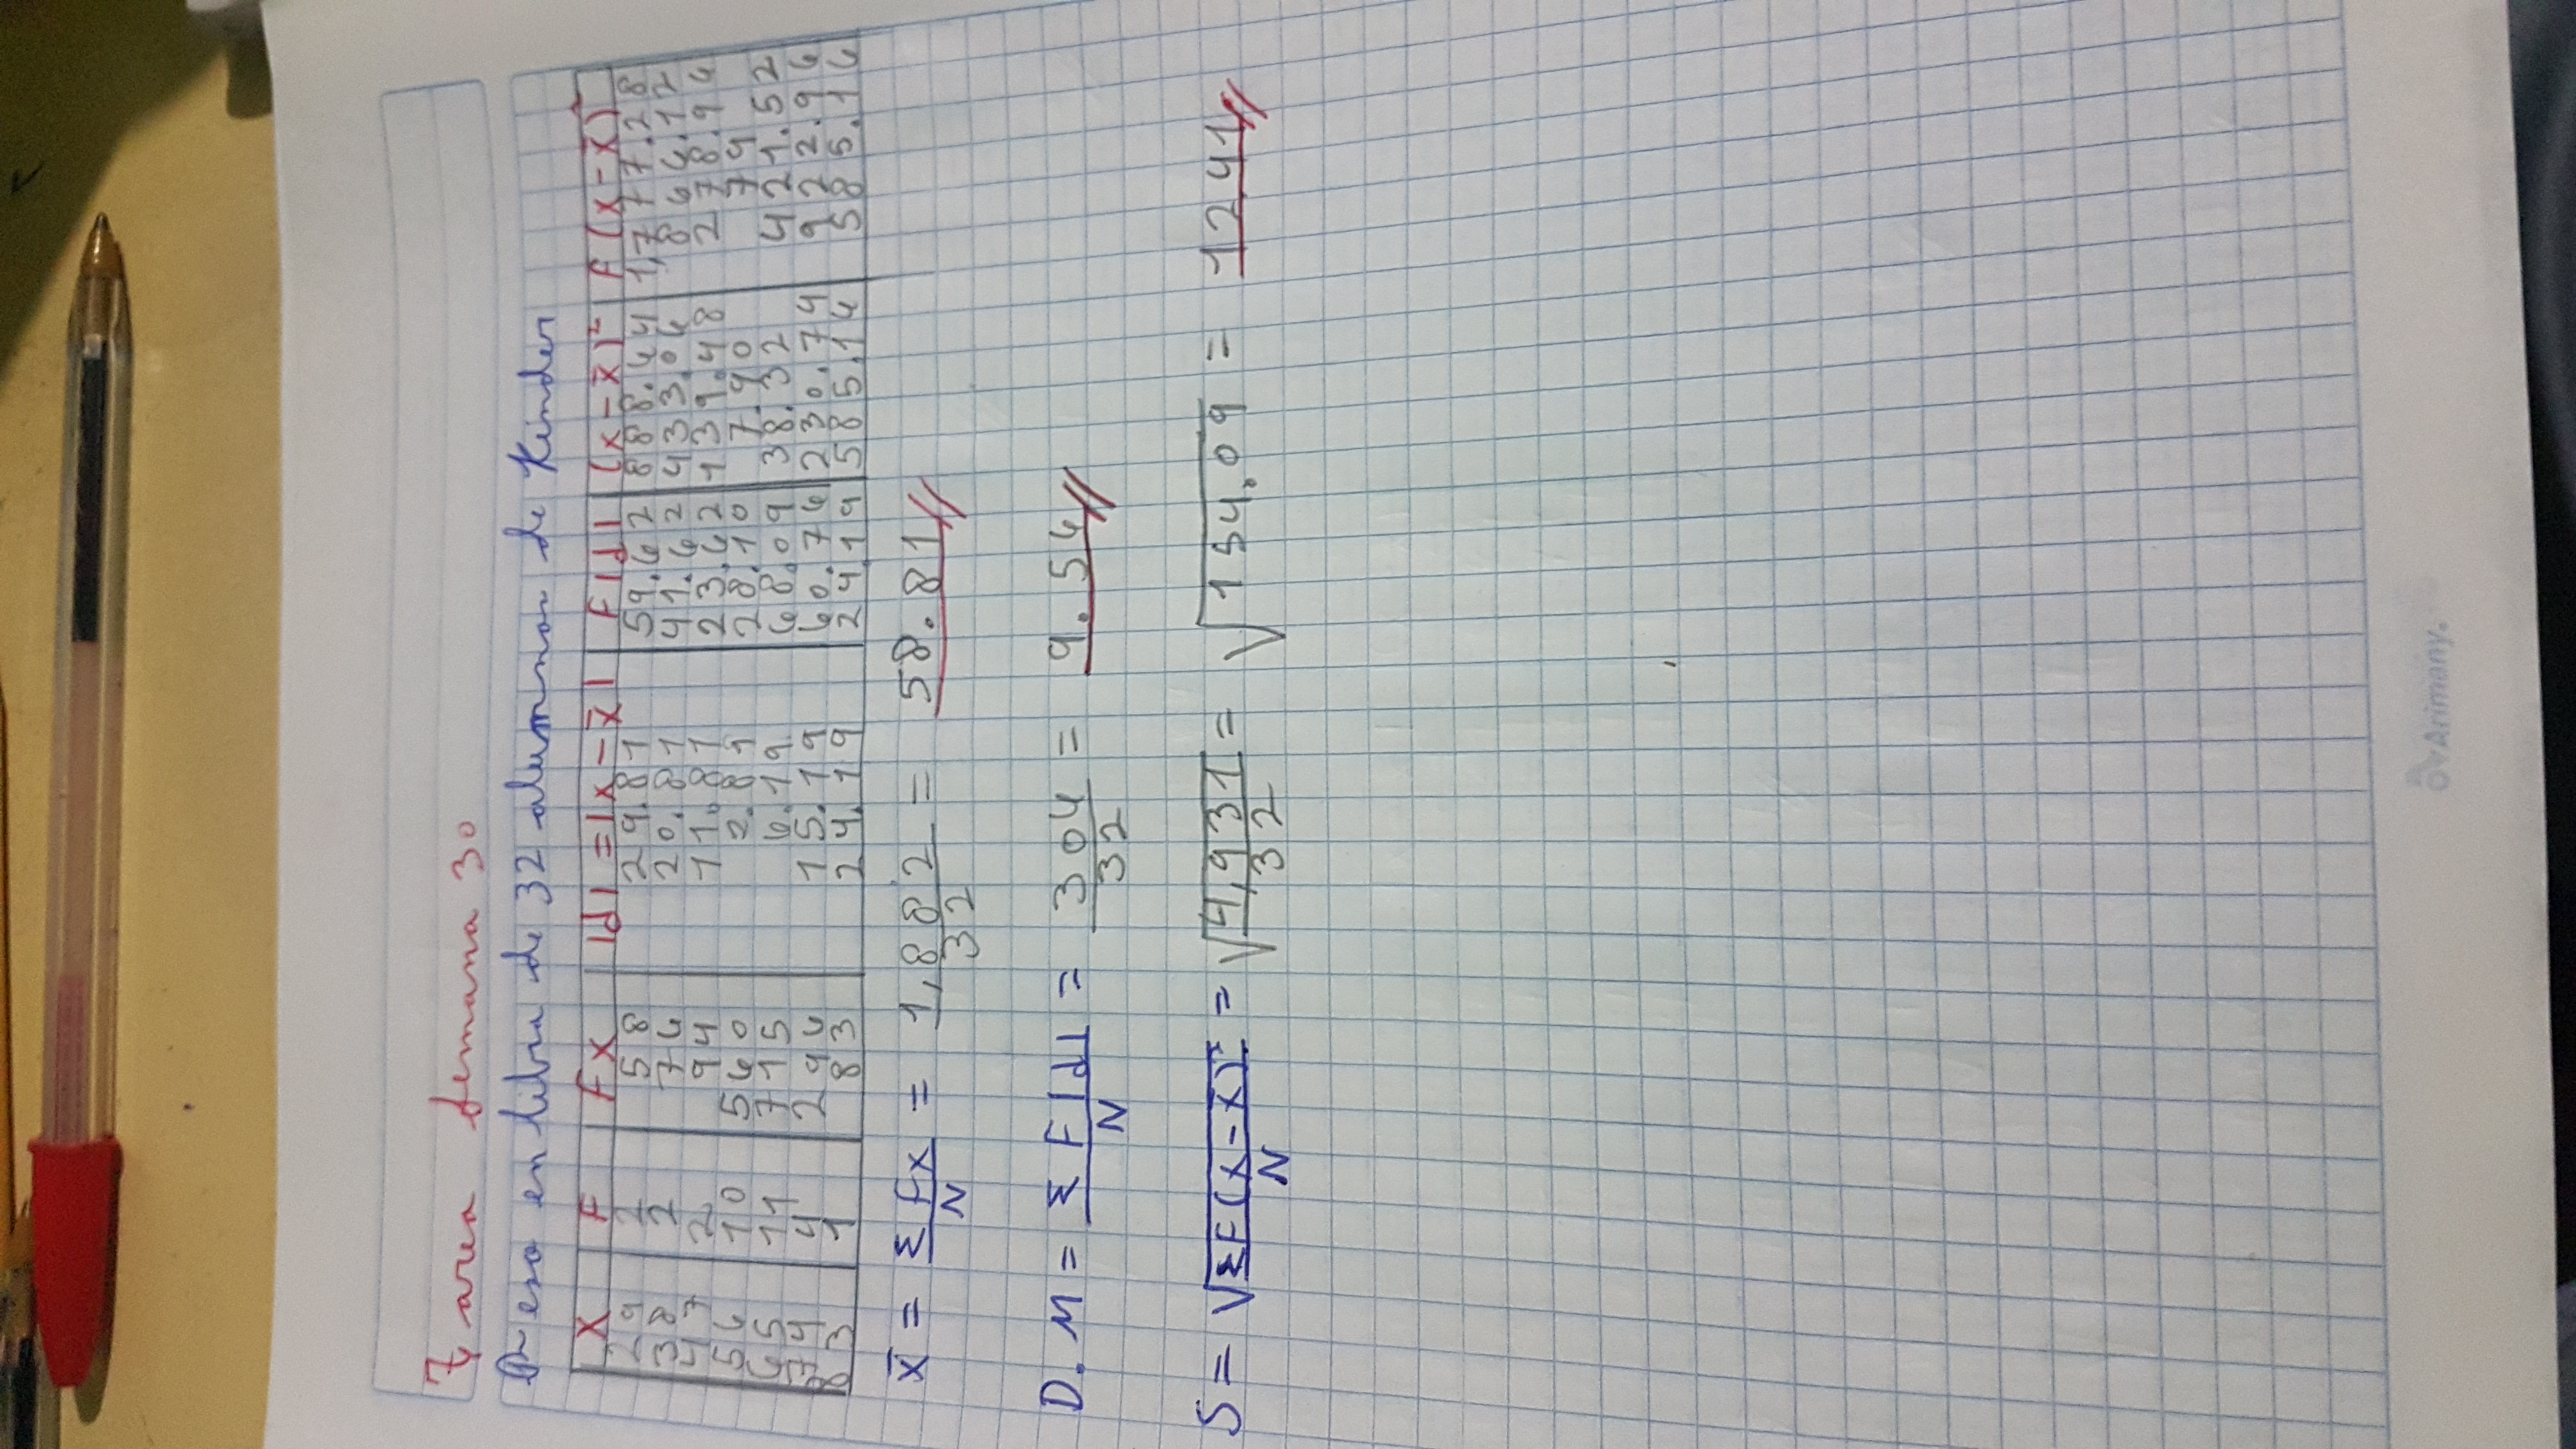 Tarea semana 30
Peso en libra de 32 alumnos de Kinder
X F Fx |d|=|x-x̄| F|d| (x-x̄)² F(x-x̄)²
29 2 58 29.81 59.62 888.64 1,777.28
38 2 76 20.81 41.62 433.06 866.12
47 2 94 11.81 23.62 139.48 278.96
56 10 560 2.81 28.10 7.90 79
65 11 715 6.19 68.09 38.32 421.52
74 4 296 15.19 60.76 230.74 922.96
83 1 83 24.19 24.19 585.16 585.16
x̄ = Σfx/N = 1,882/32 = 58.81
D.M = ΣF|d|/N = 304/32 = 9.56
S = √ΣF(x-x̄)²/N = √4,931/32 = √154.09 = 1241
Arimany.